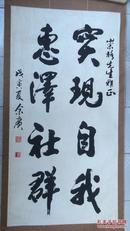 崇彬先生雅正
实现自我
惠泽社群
戊寅夏余广